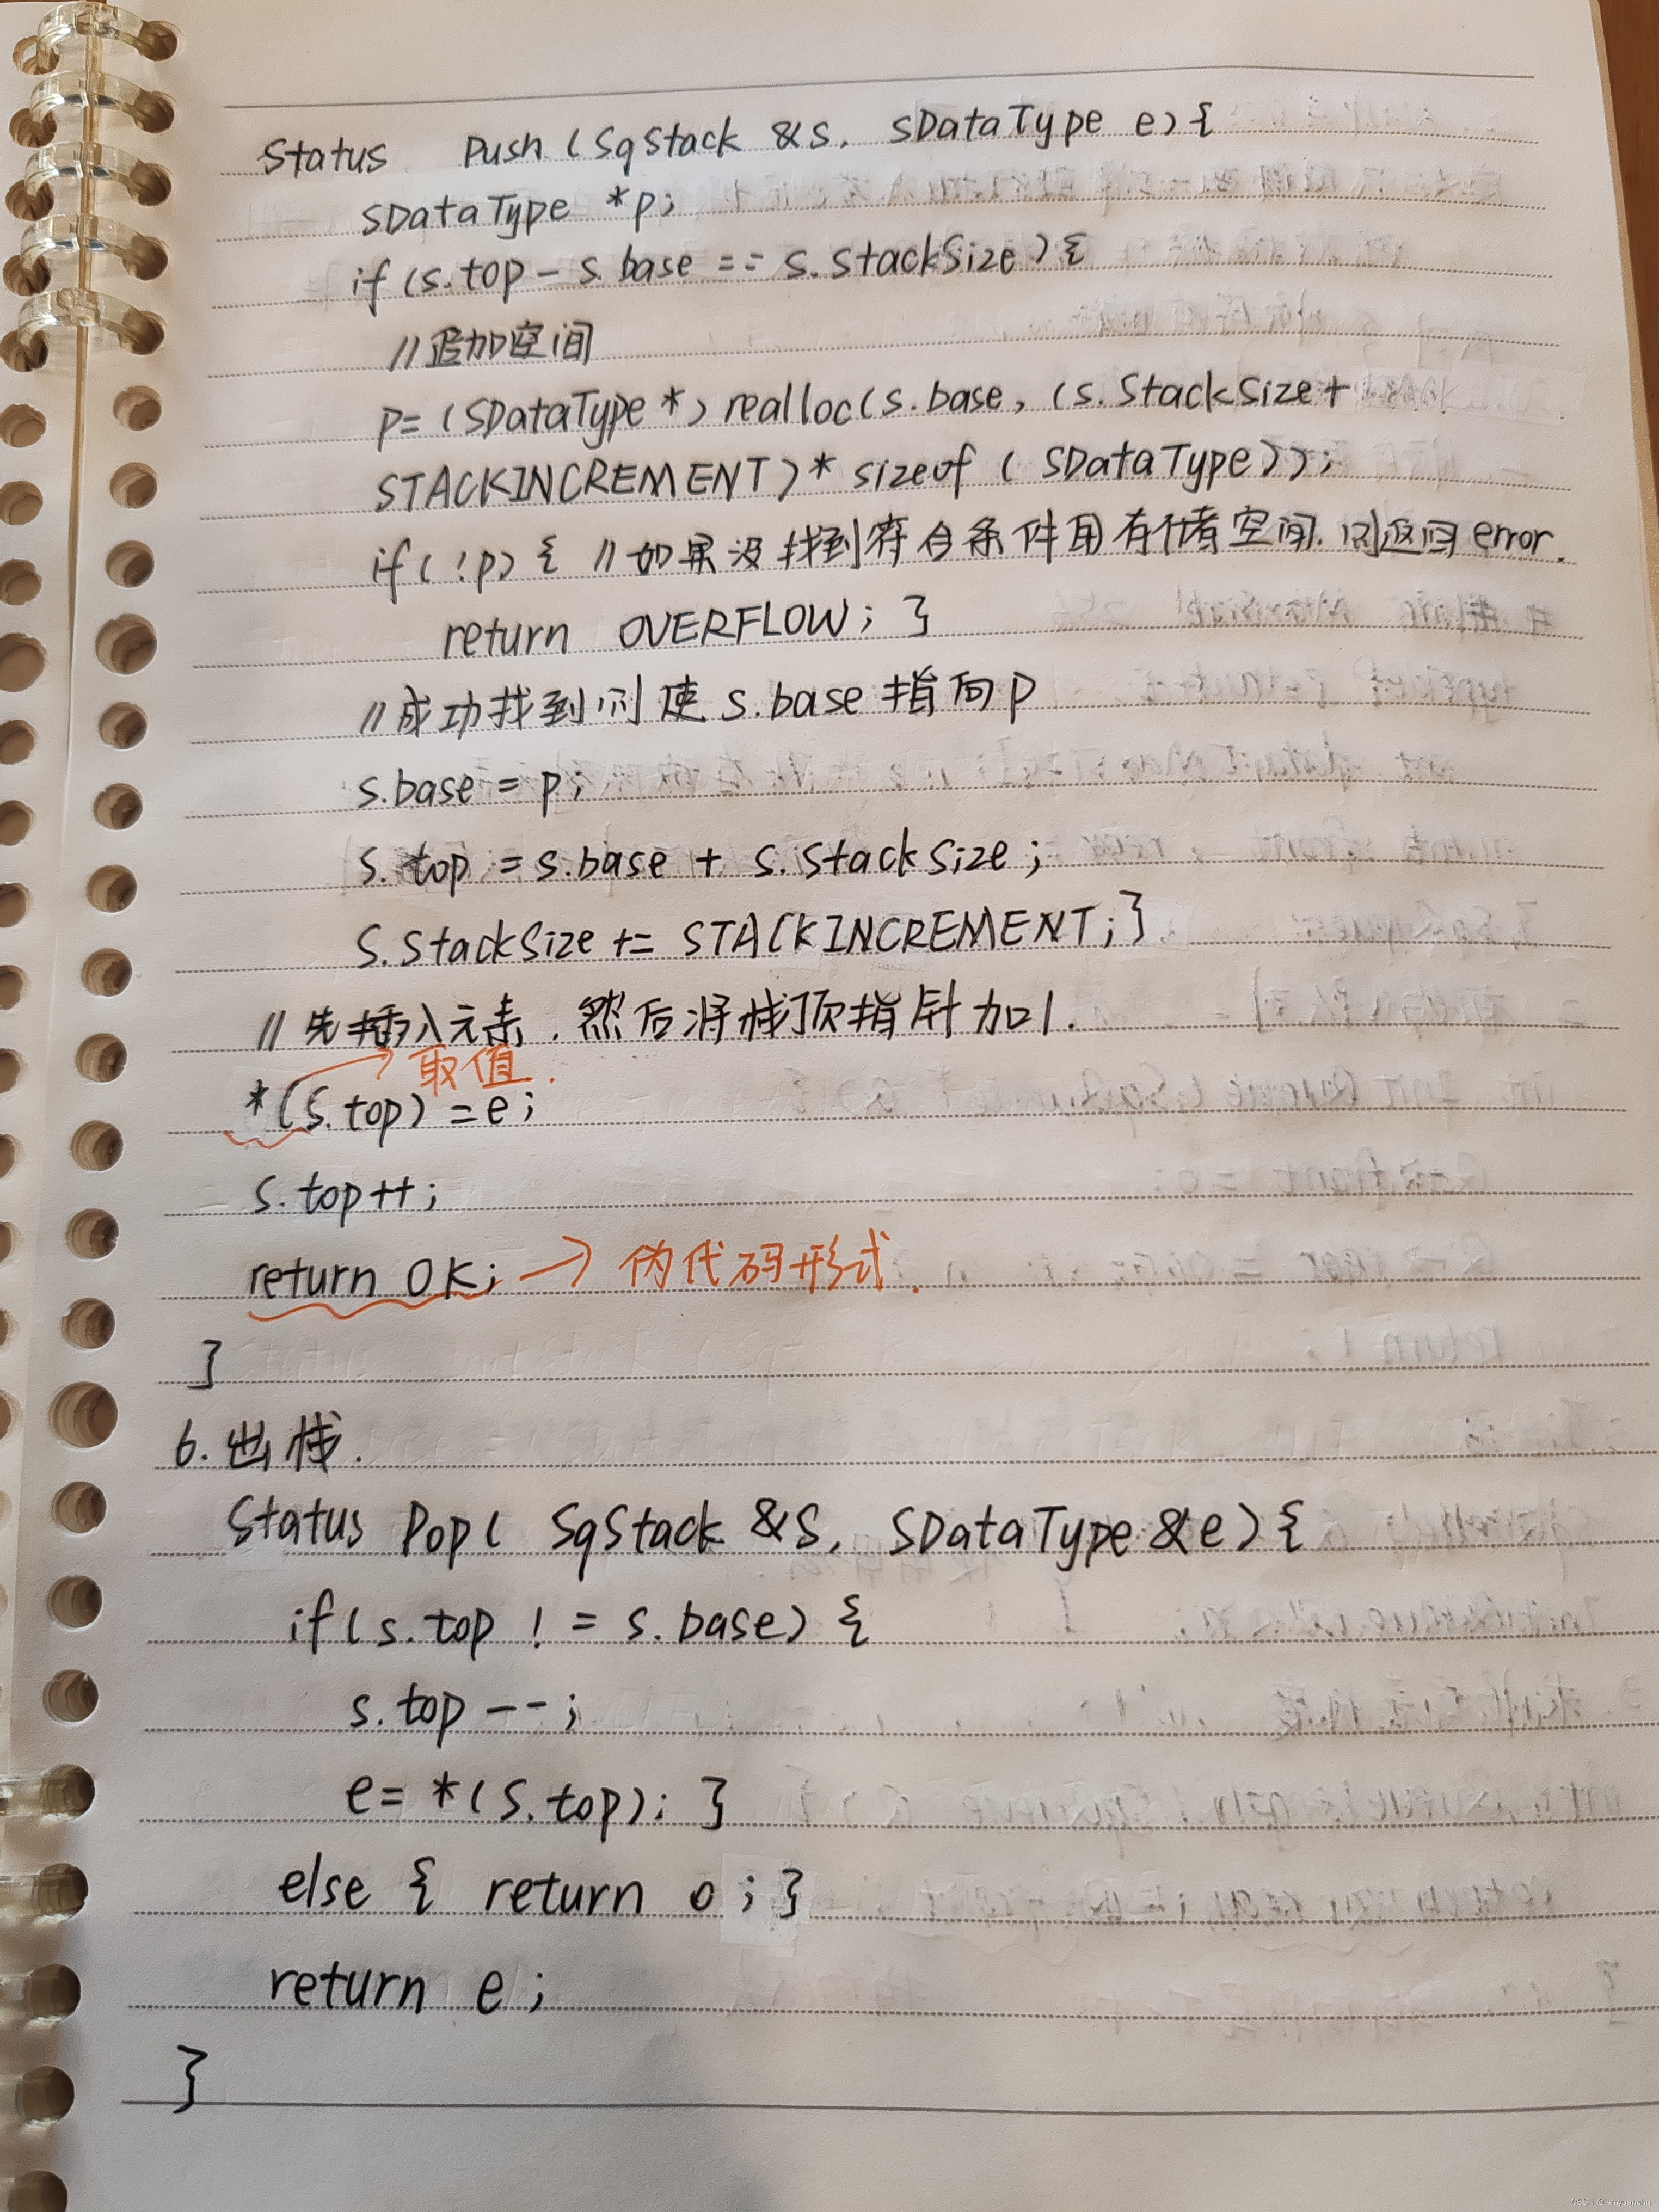 Status Push (SqStack &S, SDataType e){
SDataType *p;
if (s.top - s.base == s.stackSize) {
//追加空间
p= (SDataType *) realloc(s.base, (s.StackSize+
STACKINCREMENT) * sizeof ( SDataType));
if( !p) { //如果没找到符合条件用存储空间.则返回error.
return OVERFLOW; }
//成功找到则使s.base指向p
s.base = p;
s.top = s.base + s.stackSize;
S.StackSize += STACKINCREMENT; }
//先插入元素.然后将栈顶指针加1.
取值.
*(s.top) = e;
s.top++;
return OK; → 伪代码形式.
}
6.出栈.
Status Pop( SqStack &S, SDataType &e) {
if(s.top != s.base) {
s.top --;
e= *(S.top); }
else { return 0; }
return e;
}
CSDN @iamyuanchu